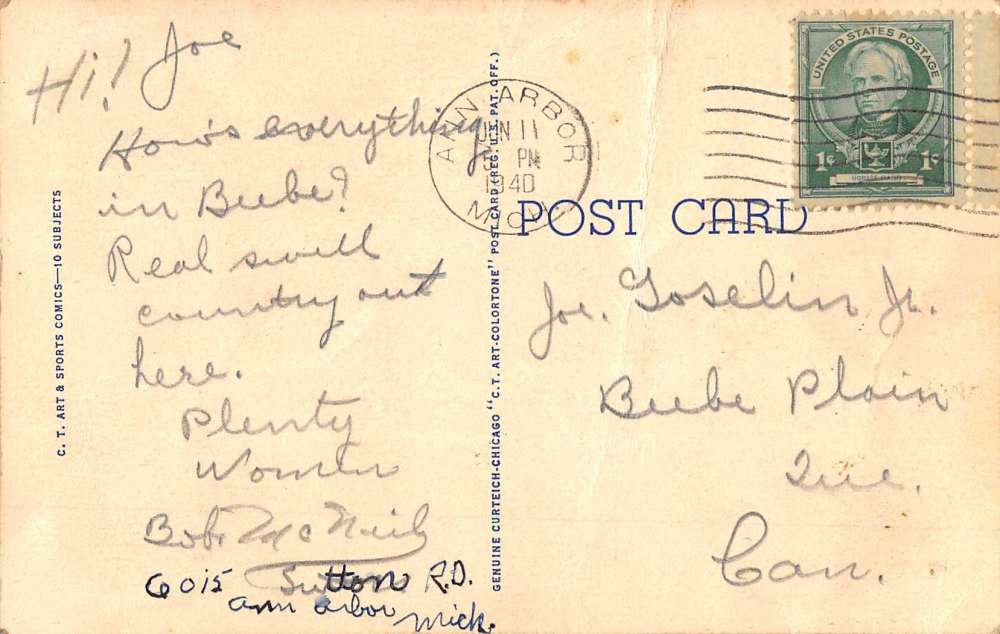 Hi! Joe
How's everything
in Beebe?
Real swell
country out
here.
Plenty
Women
Bob McNeil
6015 Sutton R.D.
ann arbor Mich.
C. T. ART & SPORTS COMICS—10 SUBJECTS
GENUINE CURTEICH-CHICAGO "C.T. ART-COLORTONE" POST CARD (REG. U.S. PAT. OFF.)
ANN ARBOR
JUN 11
5 PM
1940
MICH
UNITED STATES POSTAGE
1¢ 1¢
HORACE MANN
POST CARD
Joe. Goselin Jr.
Beebe Plain
Que.
Can.